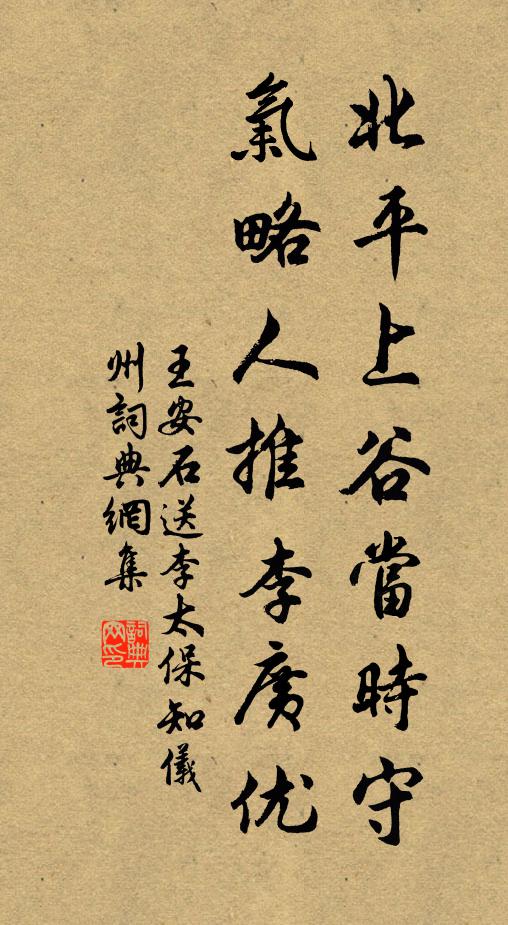 北平上谷當時守
氣略人推李廣优
王安石送李太保知儀
州詞典網集
詞典
网印